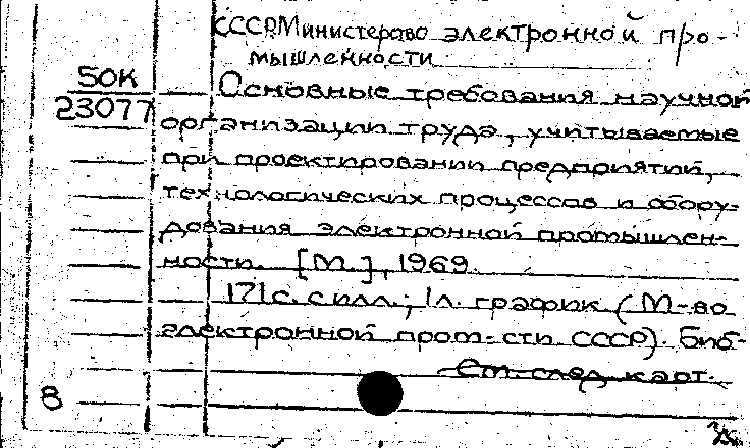 СССР. Министерство электронной про-
мышленности
50К
23077
Основные требования научной
организации труда, учитываемые
при проектировании предприятий,
технологических процессов и обору-
дования электронной промышлен-
ности. [М.], 1969.
171 с. с илл.; 1 л. график (М-во
электронной пром-сти СССР). Биб-
См. след. карт.
8